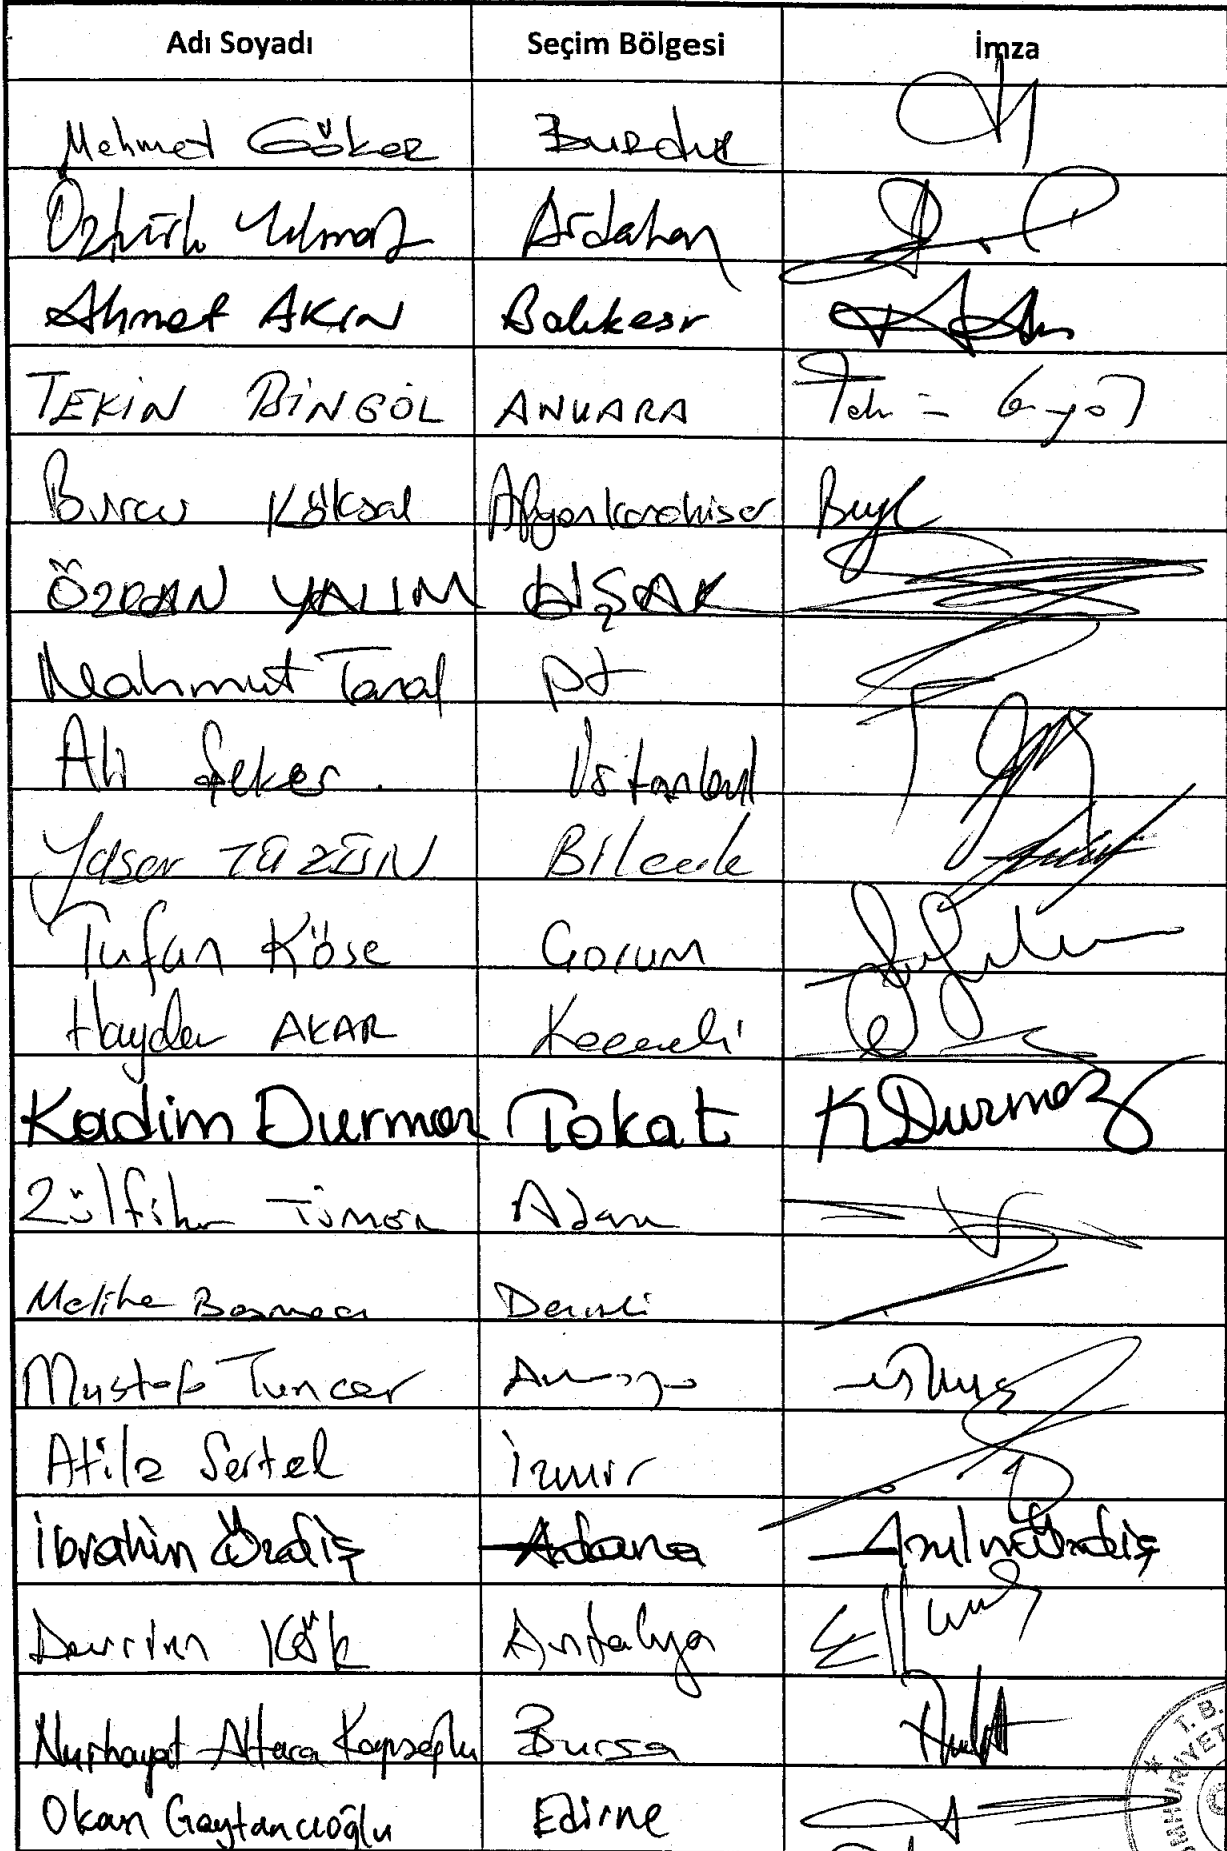 Adı Soyadı Seçim Bölgesi İmza
Mehmet Göker Burdur
Öztürk Yılmaz Ardahan
Ahmet AKIN Balıkesir
TEKİN BİNGÖL ANKARA
Burcu Köksal Afyonkarahisar
ÖZKAN YALIM UŞAK
Mahmut Tanal
Ali Şeker İstanbul
Yaşar TÜZÜN Bilecik
Tufan Köse Çorum
Haydar AKAR Kocaeli
Kadim Durmaz Tokat K Durmaz
Zülfikar Adana
Melike Basmacı Denizli
Mustafa Tuncer Amasya
Atila Sertel İzmir
İbrahim Özdiş Adana
Devrim Kök Antalya
Nurhayat Altaca Kayışoğlu Bursa
Okan Gaytancıoğlu Edirne